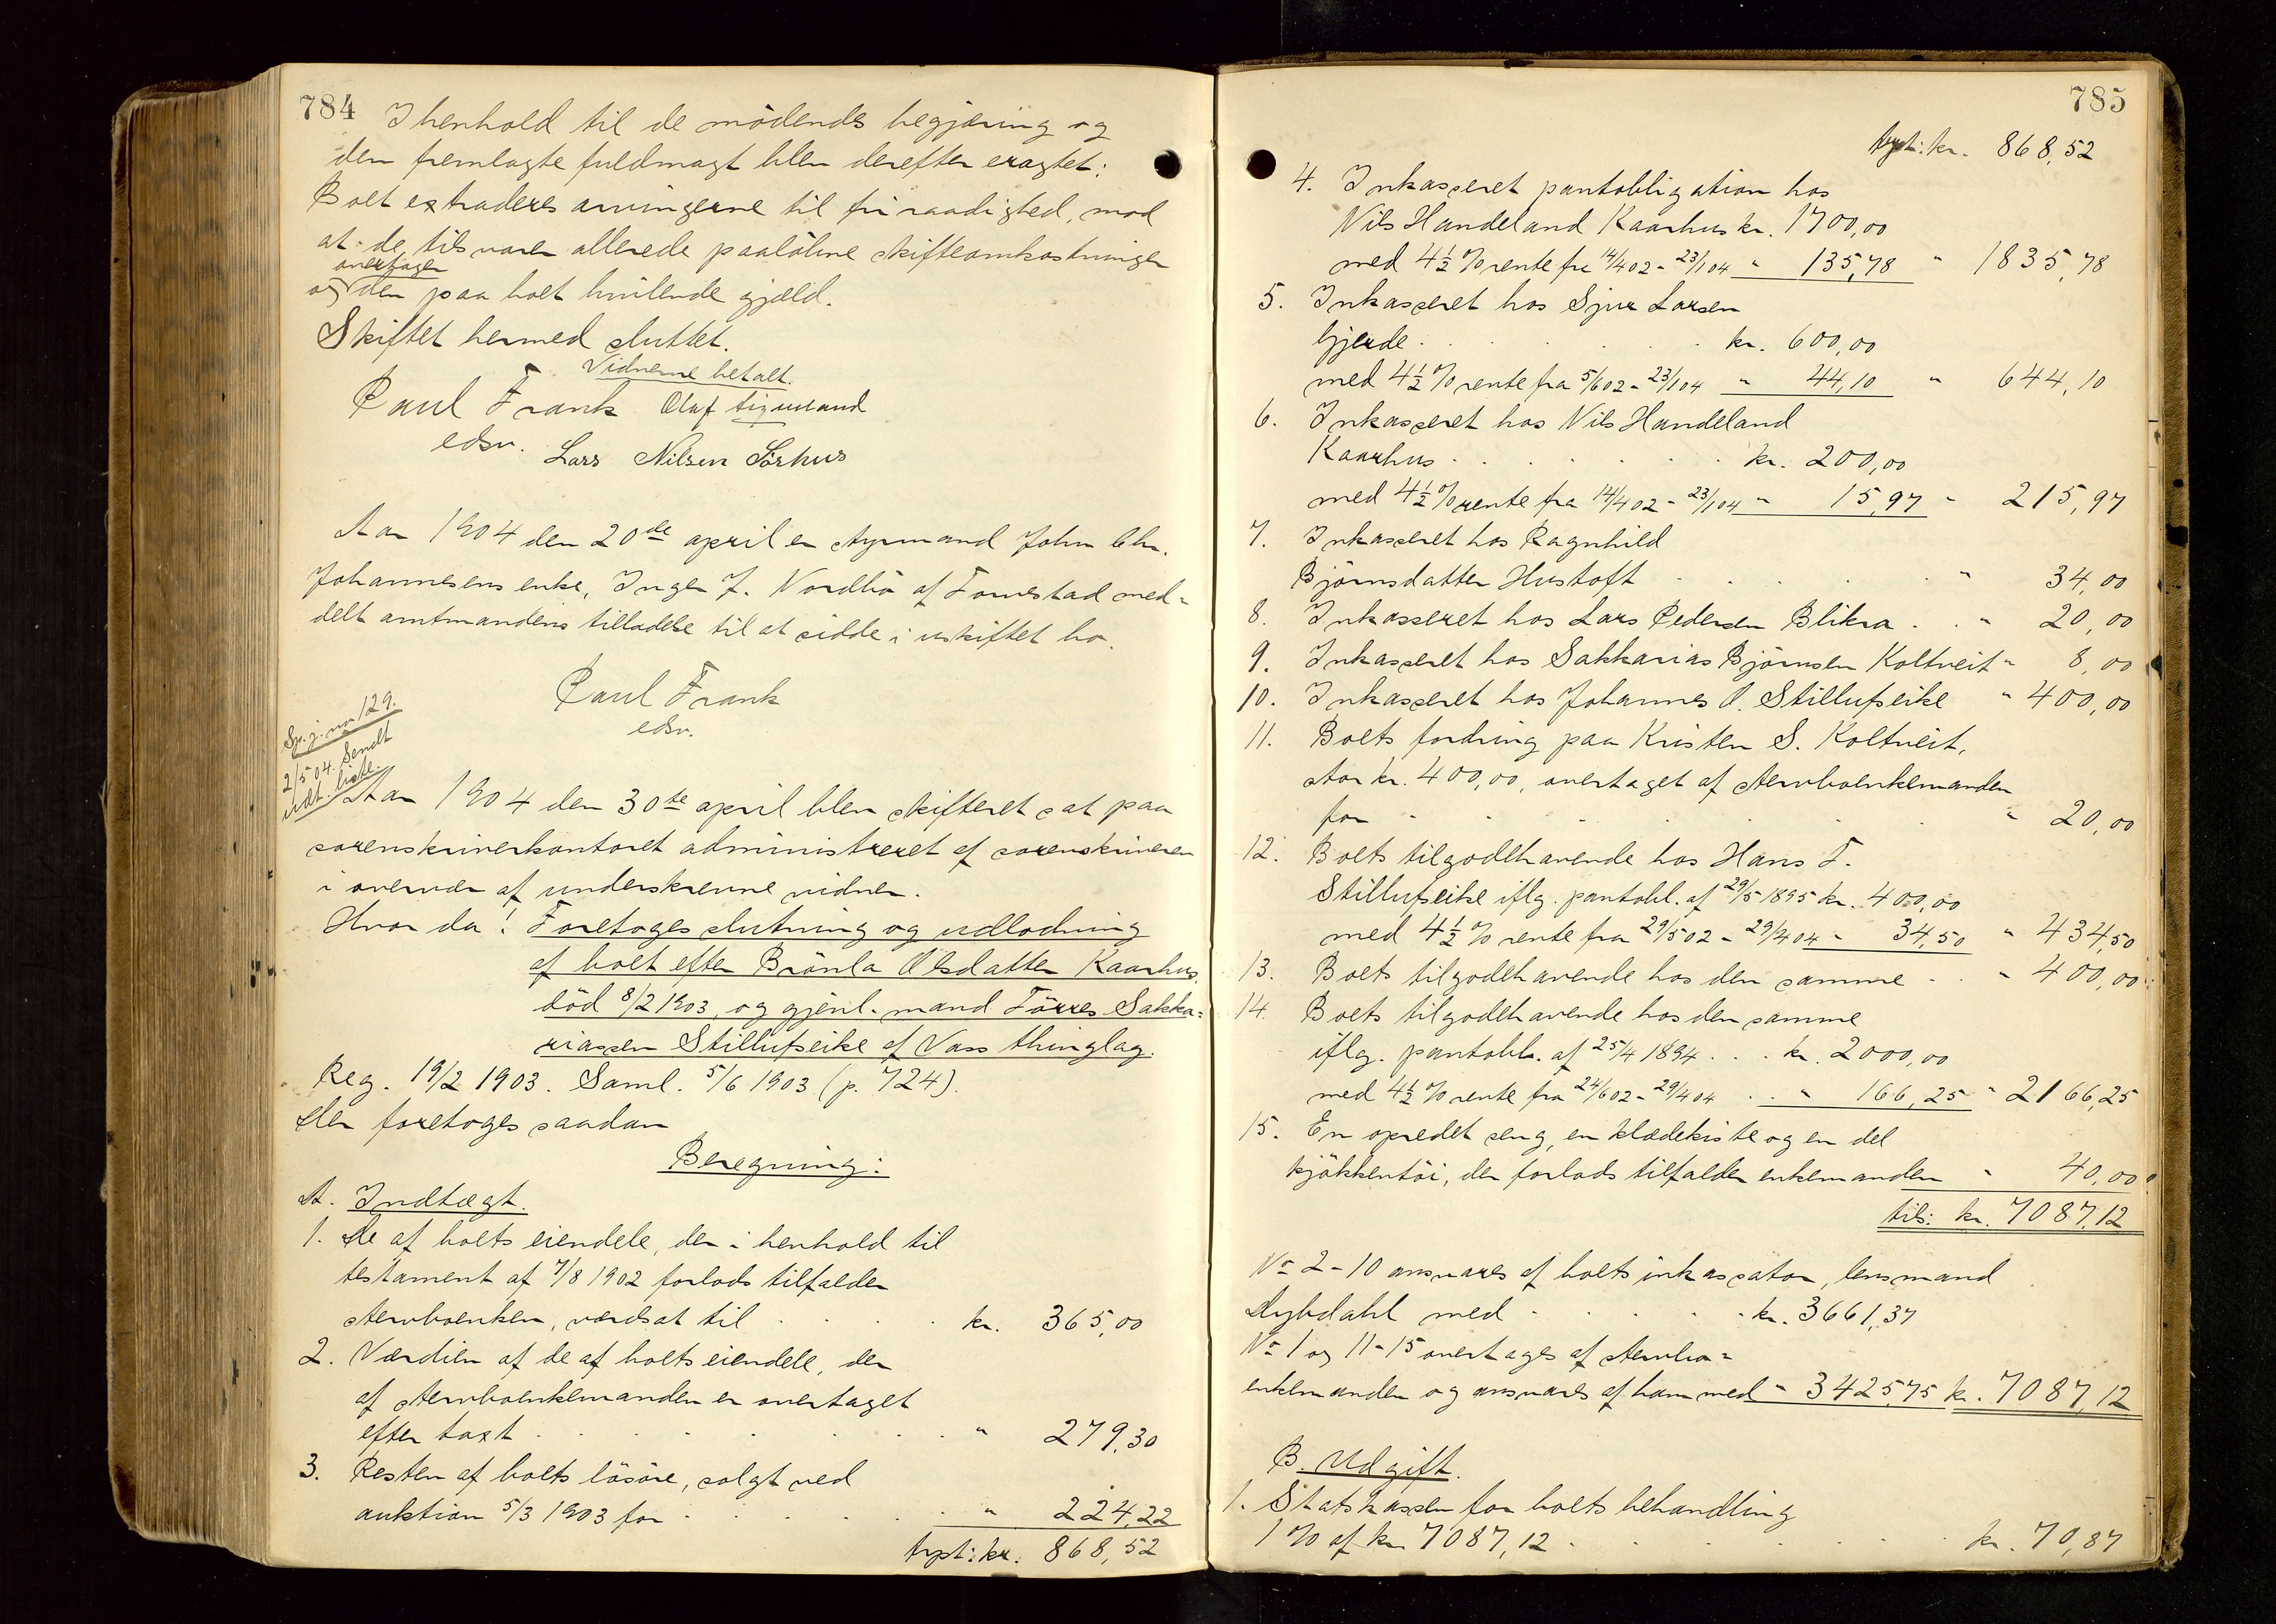 784
I henhold til de mødendes begjæring og
den fremlagte fuldmagt blev derefter eragtet:
Boet extraderes arvingerne til fri raadighed, mod
at de tilsvarer allerede paaløbne skifteomkostninger
overtager
og den paa boet hvilende gjæld.
Skiftet hermed sluttet.
Vidnerne betalt.
Paul Frank Olaf
edsv. Lars Nilsen Sørhus
Aar 1904 den 20de april er styrmand John Chr.
Johannesens enke, Inger J. Nordbø af Townstad med-
delt amtmandens tilladelse til at sidde i uskiftet bo.
Paul Frank
edsv.
Sp. j. no 129.
2/5 04. Sendt
udt. liste.
Aar 1904 den 30te april blev skifteret sat paa
sorenskriverkontoret administreret af sorenskriveren
i overvær af underskrevne vidner.
Hvor da! Foretoges slutning og udlodning
af boet efter Brønla Olsdatter Kaarhus,
død 8/2 1903, og gjenl. mand Tørres Sakka-
riassen Stillufseike af Vass thinglag.
Reg. 19/2 1903. Saml. 5/6 1903 (p. 724).
Der foretoges saadan
Beregning:
A. Indtægt.
1. De af boets eiendele, der i henhold til
testament af 7/8 1902 forlods tilfalder
stervboenken, værdsat til . . . . kr. 365,00
2. Værdien af de af boets eiendele, der
af stervboenkemanden er overtaget
efter taxt . . . . . . . " 279,30
3. Resten af boets løsøre, solgt ved
auktion 5/3 1903 for . . . . . " 224,22
trspt: kr. 868,52
785
trspt: kr. 868,52
4. Inkasseret pantobligation hos
Nils Handeland Kaarhus kr. 1700,00
med 4½ % rente fra 14/4 02 - 23/1 04 " 135,78 " 1835,78
5. Inkasseret hos Sjur Larsen
Gjerde . . . . . . kr. 600,00
med 4½ % rente fra 5/6 02 - 23/1 04 " 44,10 " 644,10
6. Inkasseret hos Nils Handeland
Kaarhus . . . . . . kr. 200,00
med 4½ % rente fra 14/4 02 - 23/1 04 " 15,97 " 215,97
7. Inkasseret hos Ragnhild
Bjørnsdatter Hustoft . . . . . " 34,00
8. Inkasseret hos Lars Pedersen Blikra . . " 20,00
9. Inkasseret hos Sakkarias Bjørnsen Koltveit " 8,00
10. Inkasseret hos Johannes O. Stillufseike " 400,00
11. Boets fordring paa Kristen S. Koltveit,
stor kr. 400,00, overtaget af stervboenkemanden
for . . . . . . . " 20,00
12. Boets tilgodehavende hos Hans T.
Stillufseike iflg. pantobl. af 29/5 1895 kr. 400,00
med 4½ % rente fra 29/5 02 - 29/4 04 " 34,50 " 434,50
13. Boets tilgodehavende hos den samme . . " 400,00
14. Boets tilgodehavende hos den samme
iflg. pantobl. af 25/4 1894 . . . kr. 2000,00
med 4½ % rente fra 24/6 02 - 29/4 04 . . " 166,25 " 2166,25
15. En opredet seng, en klædekiste og en del
kjøkkentøi, der forlods tilfalder enkemanden " 40,00
tils: kr. 7087,12
No 2-10 ansvares af boets inkassator, lensmand
Dybdahl med . . . . . kr. 3661,37
No 1 og 11-15 overtages af stervbo-
enkemanden og ansvares af ham med " 3425,75 kr. 7087,12
B. Udgift.
1. Statskassen for boets behandling
1 % af kr. 7087,12 . . . . . . kr. 70,87